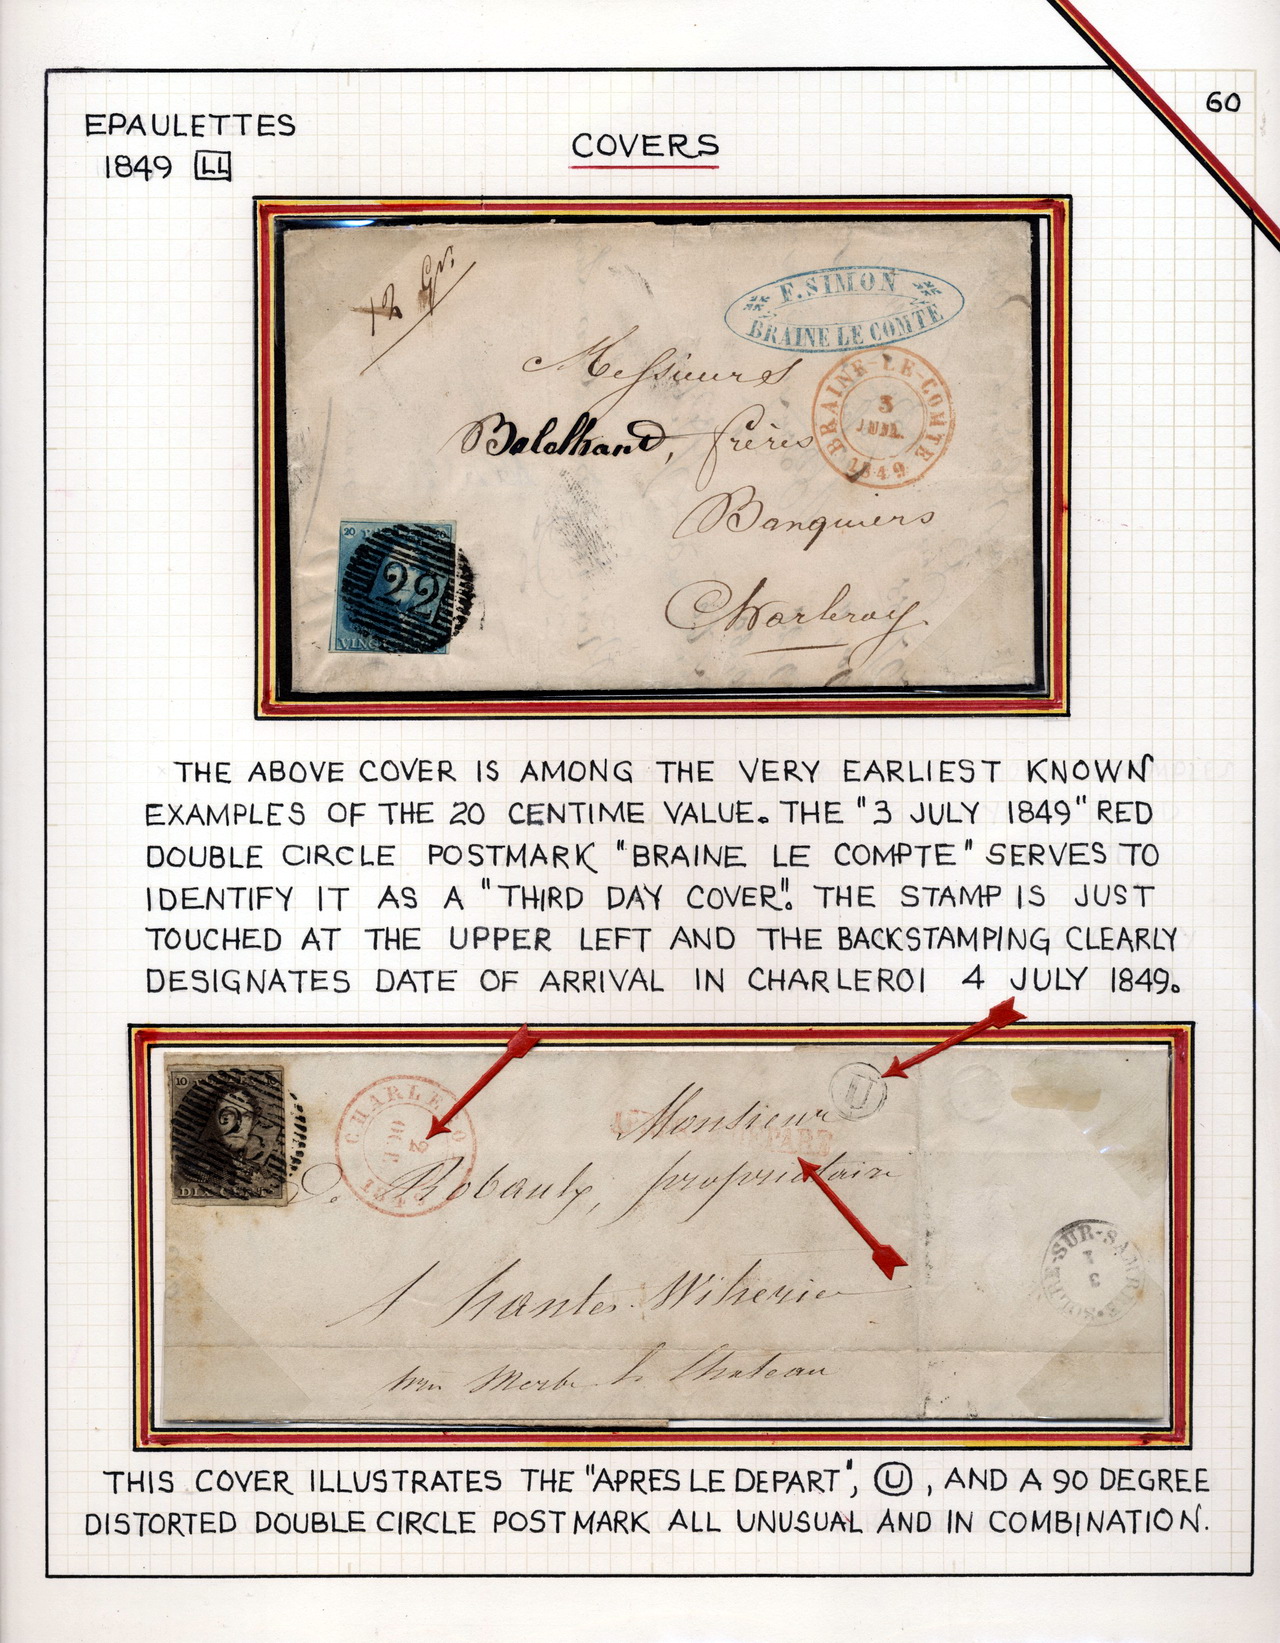 60
EPAULETTES
1849 LL
COVERS
12 Gr.
F. SIMON
BRAINE LE COMTE
Messieurs
BRAINE-LE-COMTE
3
JUIL.
1849
frères
Banquiers
Charleroy
20
22
VINGT
THE ABOVE COVER IS AMONG THE VERY EARLIEST KNOWN
EXAMPLES OF THE 20 CENTIME VALUE. THE "3 JULY 1849" RED
DOUBLE CIRCLE POSTMARK "BRAINE LE COMPTE" SERVES TO
IDENTIFY IT AS A "THIRD DAY COVER". THE STAMP IS JUST
TOUCHED AT THE UPPER LEFT AND THE BACKSTAMPING CLEARLY
DESIGNATES DATE OF ARRIVAL IN CHARLEROI 4 JULY 1849.
10
DIX CENT
CHARLERO
2
OCT
U
Monsieur
propriétaire
SOLRE-SUR-SAMBRE
à hantes Wiherie
Merbe le Chateau
THIS COVER ILLUSTRATES THE "APRES LE DEPART", U, AND A 90 DEGREE
DISTORTED DOUBLE CIRCLE POSTMARK ALL UNUSUAL AND IN COMBINATION.